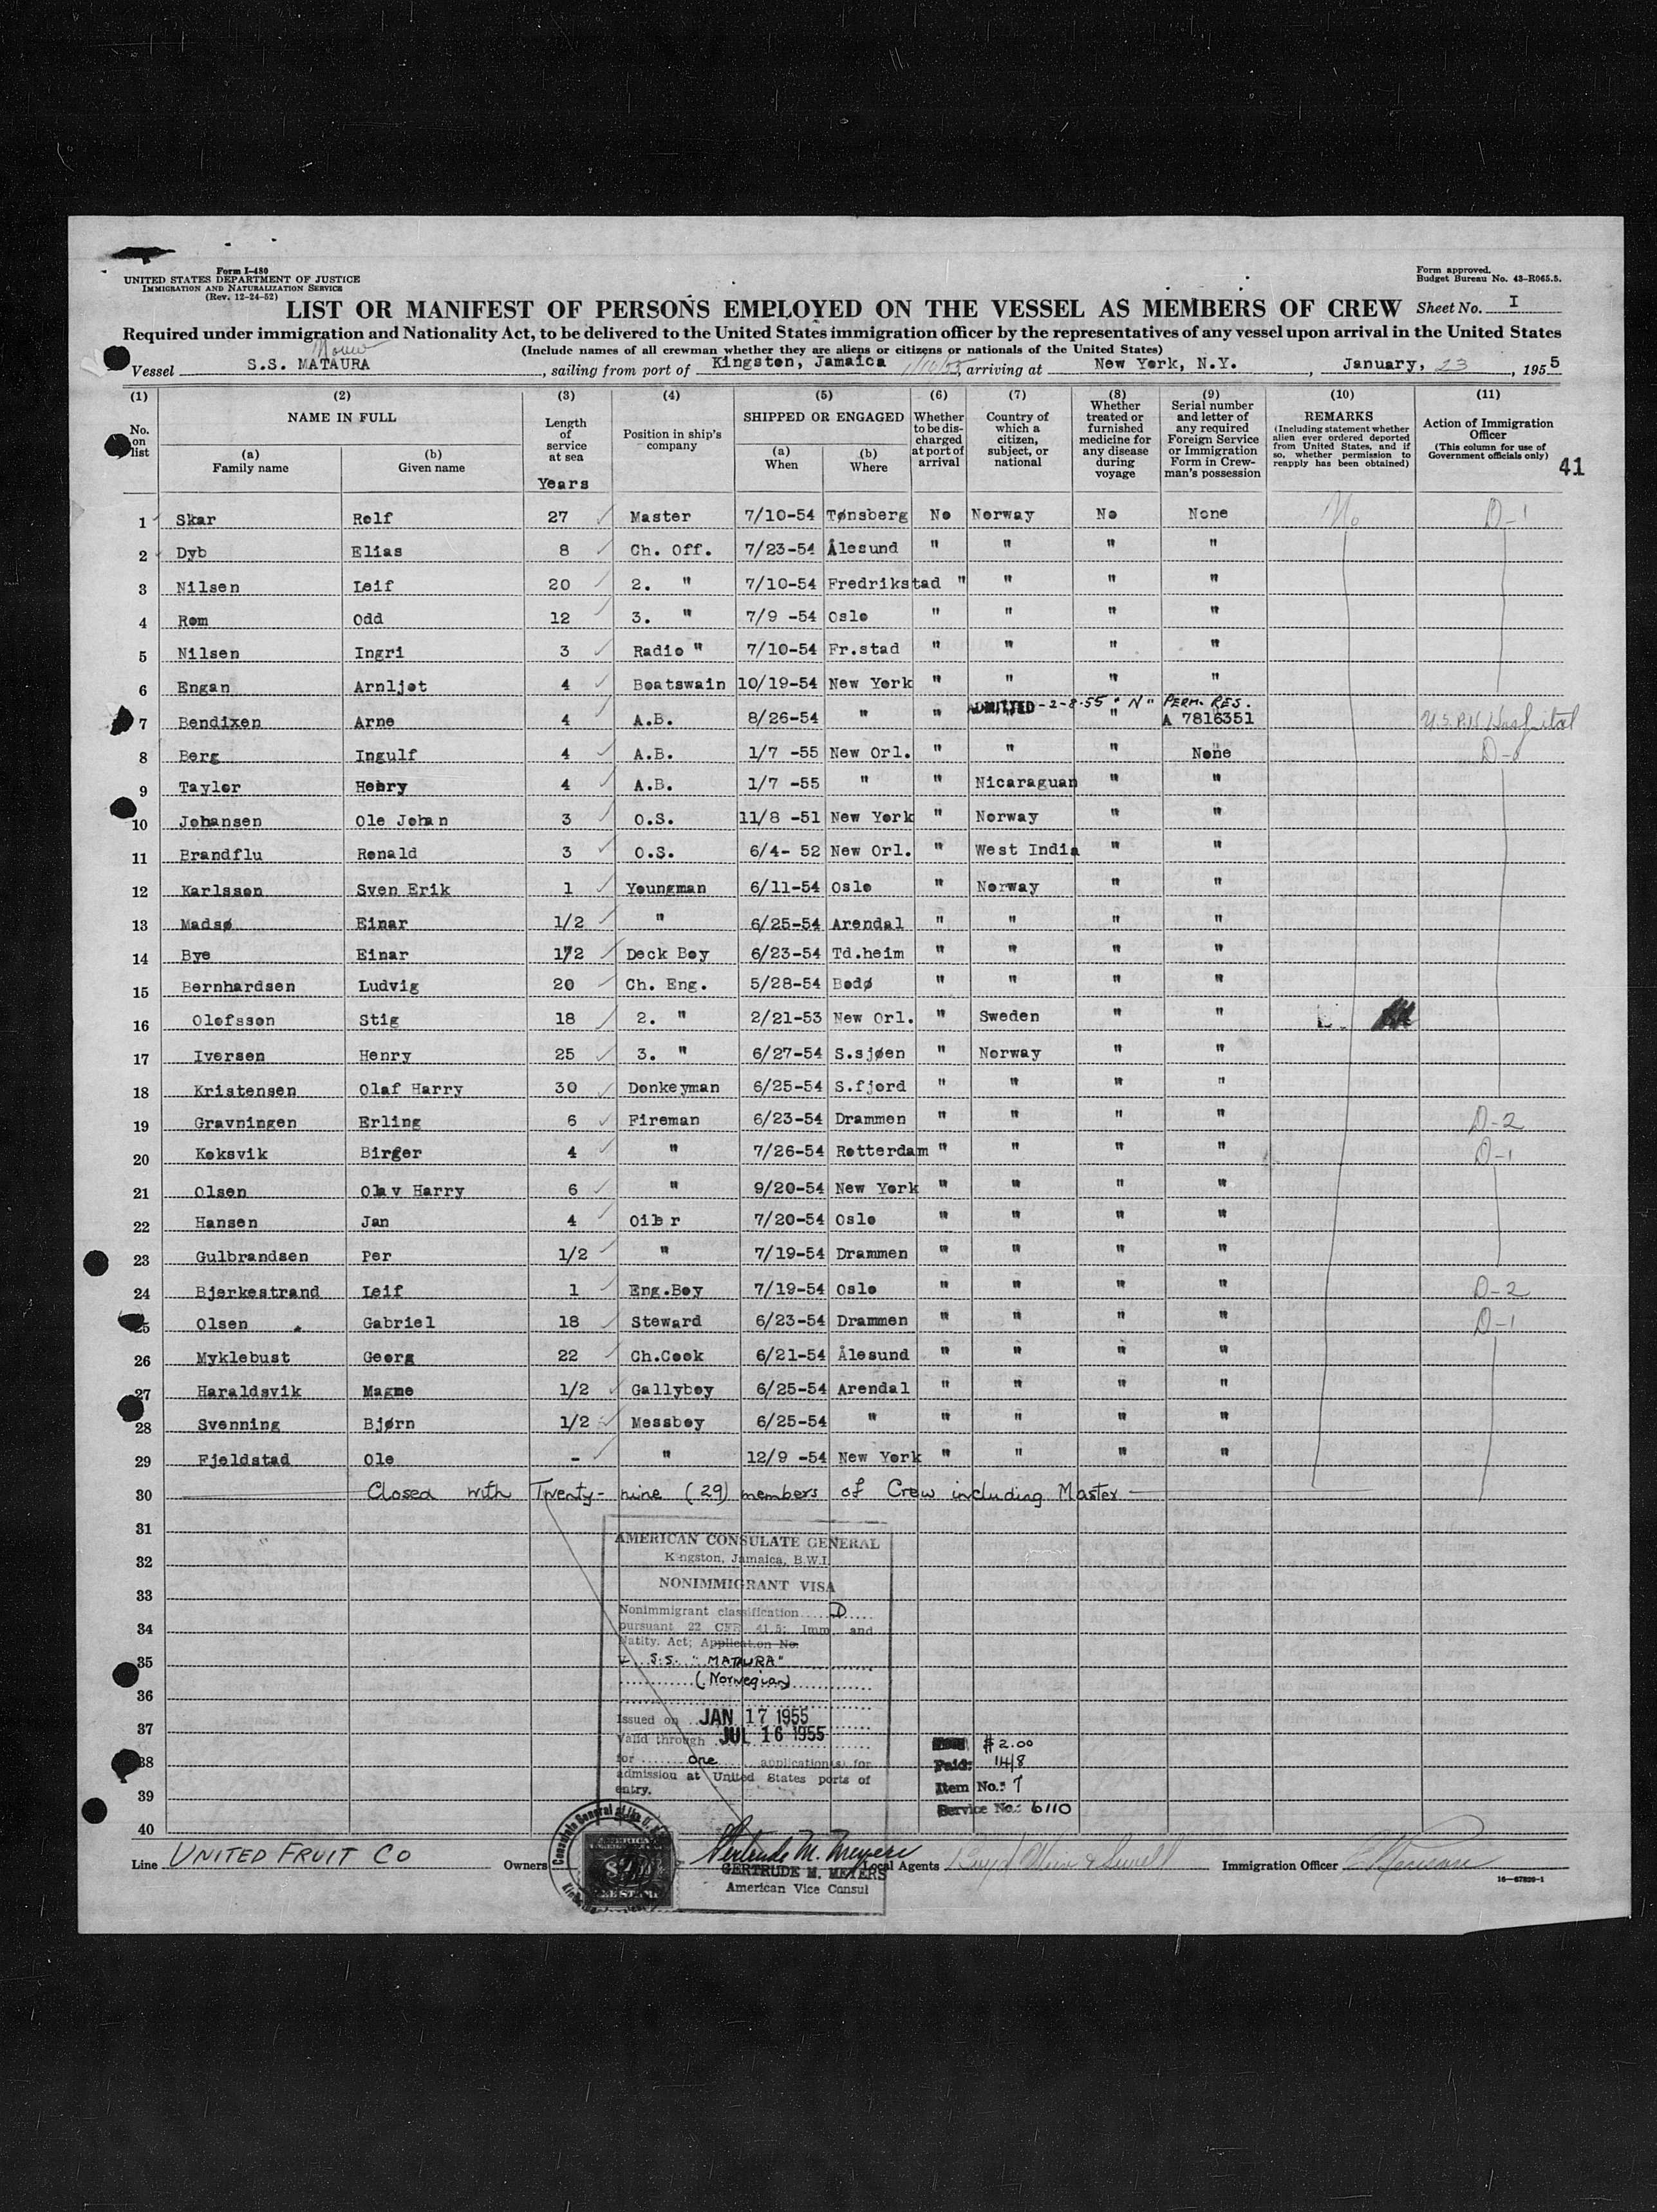 Form I-480
UNITED STATES DEPARTMENT OF JUSTICE
IMMIGRATION AND NATURALIZATION SERVICE
(Rev. 12-24-52)
Form approved.
Budget Bureau No. 43-R065.5.
LIST OR MANIFEST OF PERSONS EMPLOYED ON THE VESSEL AS MEMBERS OF CREW Sheet No. I
Required under immigration and Nationality Act, to be delivered to the United States immigration officer by the representatives of any vessel upon arrival in the United States
(Include names of all crewman whether they are aliens or citizens or nationals of the United States)
Vessel S.S. MATAURA, sailing from port of Kingston, Jamaica, arriving at New York, N.Y., January, 23, 1955
(1) No. on list
(2) NAME IN FULL
(a) Family name
(b) Given name
(3) Length of service at sea
Years
(4) Position in ship's company
(5) SHIPPED OR ENGAGED
(a) When
(b) Where
(6) Whether to be discharged at port of arrival
(7) Country of which a citizen, subject, or national
(8) Whether treated or furnished medicine for any disease during voyage
(9) Serial number and letter of any required Foreign Service or Immigration Form in Crewman's possession
(10) REMARKS (Including statement whether alien ever ordered deported from United States, and if so, whether permission to reapply has been obtained)
(11) Action of Immigration Officer (This column for use of Government officials only)
41
1 Skar Rolf 27 Master 7/10-54 Tønsberg No Norway No None No D-1
2 Dyb Elias 8 Ch. Off. 7/23-54 Ålesund " " " "
3 Nilsen Leif 20 2. " 7/10-54 Fredrikstad " " " "
4 Rom Odd 12 3. " 7/9 -54 Oslo " " " "
5 Nilsen Ingri 3 Radio " 7/10-54 Fr.stad " " " "
6 Engan Arnljot 4 Boatswain 10/19-54 New York " " " "
ADMITTED - 2-8-55 "N" PERM. RES.
7 Bendixen Arne 4 A.B. 8/26-54 " " " " A 7816351 U.S.P.H. Hospital
8 Berg Ingulf 4 A.B. 1/7 -55 New Orl. " " " None D-1
9 Taylor Henry 4 A.B. 1/7 -55 " " Nicaraguan " "
10 Johansen Ole Johan 3 O.S. 11/8 -51 New York " Norway " "
11 Brandflu Ronald 3 O.S. 6/4- 52 New Orl. " West India " "
12 Karlsson Sven Erik 1 Youngman 6/11-54 Oslo " Norway " "
13 Madsø Einar 1/2 " 6/25-54 Arendal " " " "
14 Bye Einar 1/2 Deck Boy 6/23-54 Td.heim " " " "
15 Bernhardsen Ludvig 20 Ch. Eng. 5/28-54 Bodø " " " "
16 Olofsson Stig 18 2. " 2/21-53 New Orl. " Sweden " "
17 Iversen Henry 25 3. " 6/27-54 S.sjøen " Norway " "
18 Kristensen Olaf Harry 30 Donkeyman 6/25-54 S.fjord " " " "
19 Gravningen Erling 6 Fireman 6/23-54 Drammen " " " " D-2
20 Koksvik Birger 4 " 7/26-54 Rotterdam " " " " D-1
21 Olsen Olav Harry 6 " 9/20-54 New York " " " "
22 Hansen Jan 4 Oiler 7/20-54 Oslo " " " "
23 Gulbrandsen Per 1/2 " 7/19-54 Drammen " " " "
24 Bjerkestrand Leif 1 Eng.Boy 7/19-54 Oslo " " " " D-2
25 Olsen Gabriel 18 Steward 6/23-54 Drammen " " " " D-1
26 Myklebust Georg 22 Ch.Cook 6/21-54 Ålesund " " " "
27 Haraldsvik Magne 1/2 Gallyboy 6/25-54 Arendal " " " "
28 Svenning Bjørn 1/2 Messboy 6/25-54 " " " " "
29 Fjeldstad Ole - " 12/9 -54 New York " " " "
30 Closed with Twenty-nine (29) members of Crew including Master
31
32
33
34
35
36
37
38
39
40
AMERICAN CONSULATE GENERAL
Kingston, Jamaica, B.W.I.
NONIMMIGRANT VISA
Nonimmigrant classification D
pursuant 22 CFR 41.5; Imm and
Natity. Act; Application No.
S.S. "MATAURA"
(Norwegian)
Issued on JAN 17 1955
Valid through JUL 16 1955
for one application(s) for
admission at United States ports of
entry.
$2.00
Paid: 14/8
Item No.: 7
Service No.: 6110
Gertrude M. Meyers
GERTRUDE M. MEYERS
American Vice Consul
Line UNITED FRUIT CO Owners Local Agents Immigration Officer
16-67829-1